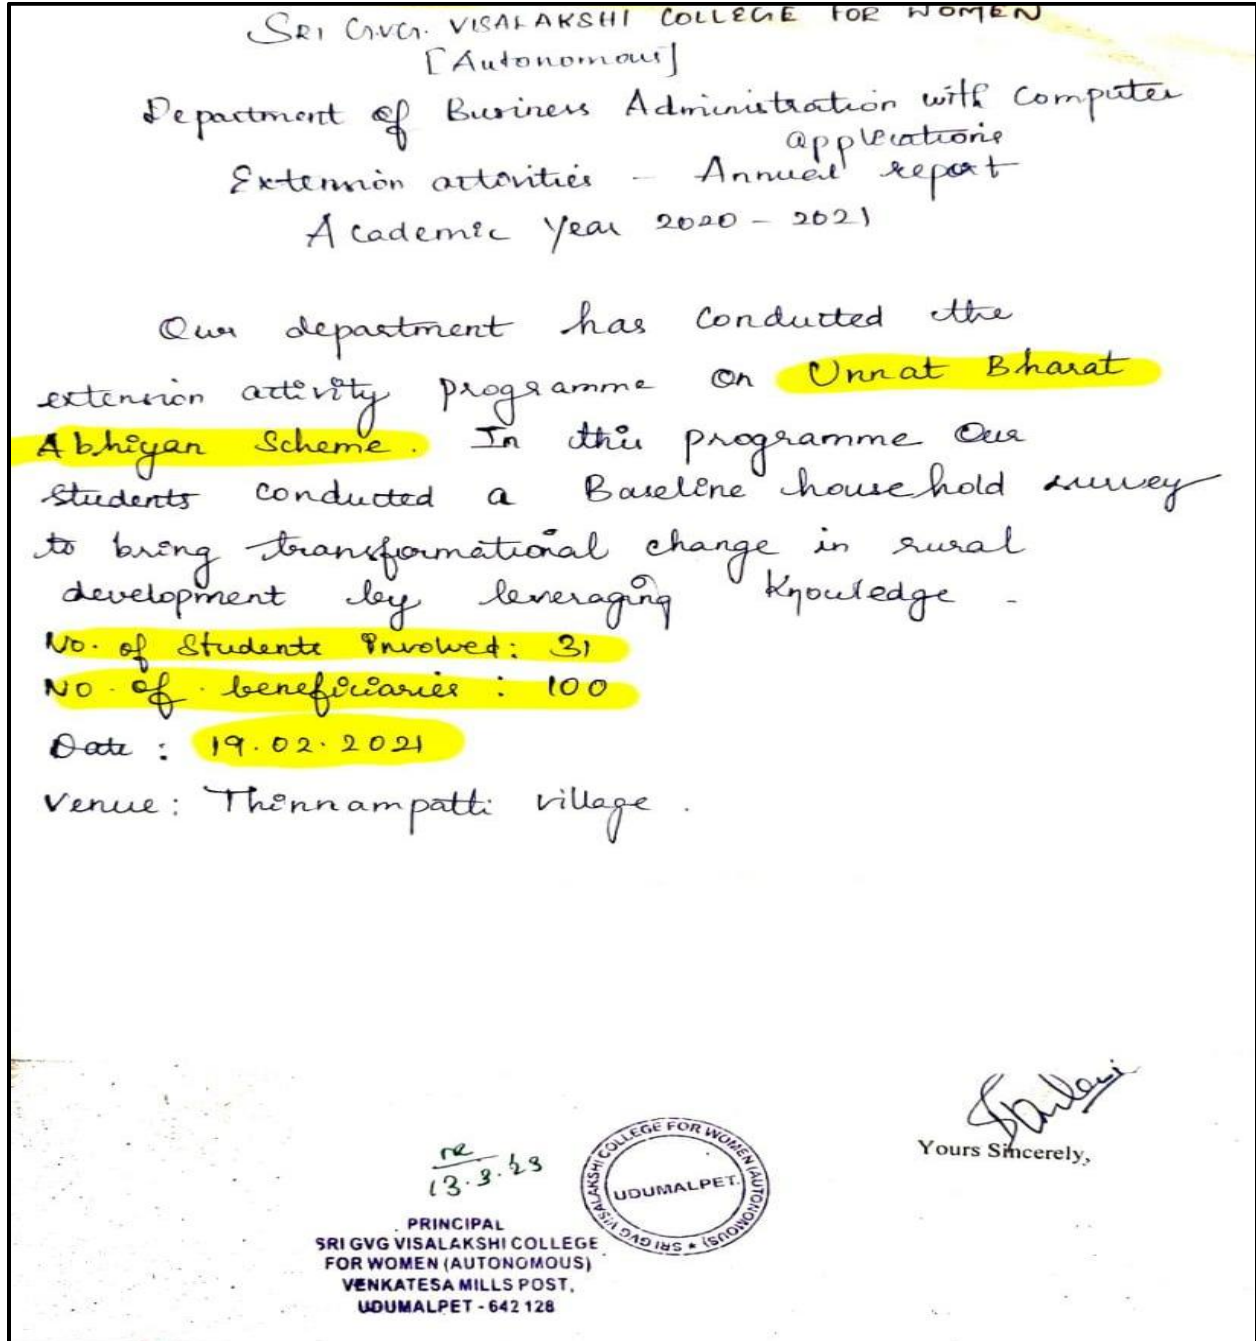 SRI G.V.G. VISALAKSHI COLLEGE FOR WOMEN
[Autonomous]
Department of Business Administration with Computer
applications
Extension activities - Annual report
Academic Year 2020 - 2021
Our department has conducted the
extension activity programme on Unnat Bharat
Abhiyan Scheme. In this programme Our
students conducted a Baseline household survey
to bring transformational change in rural
development by leveraging Knowledge -
No. of Students Involved: 31
No. of. beneficiaries : 100
Date : 19.02.2021
Venue: Thinnampatti village.
Yours Sincerely,
13.3.23
SRI GVG VISALAKSHI COLLEGE FOR WOMEN (AUTONOMOUS) ★
UDUMALPET.
PRINCIPAL
SRI GVG VISALAKSHI COLLEGE
FOR WOMEN (AUTONOMOUS)
VENKATESA MILLS POST,
UDUMALPET - 642 128